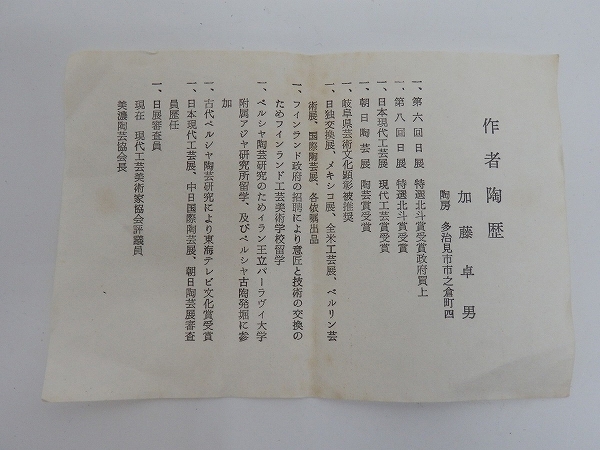 作者陶歴
加藤卓男
陶房 多治見市市之倉町四
一、第六回日展 特選北斗賞受賞政府買上
一、第八回日展 特選北斗賞受賞
一、日本現代工芸展 現代工芸賞受賞
一、朝日陶芸展 陶芸賞受賞
一、岐阜県芸術文化顕彰被推奨
一、日独交換展、メキシコ展、全米工芸展、ベルリン芸
術展、国際陶芸展、各依嘱出品
一、フィンランド政府の招聘により意匠と技術の交換の
ためフィンランド工芸美術学校留学
一、ペルシャ陶芸研究のためイラン王立パーラヴィ大学
附属アジヤ研究所留学、及びペルシャ古陶発掘に参
加
一、古代ペルシャ陶芸研究により東海テレビ文化賞受賞
一、日本現代工芸展、中日国際陶芸展、朝日陶芸展審査
員歴任
一、日展審査員
現在 現代工芸美術家協会評議員
美濃陶芸協会長